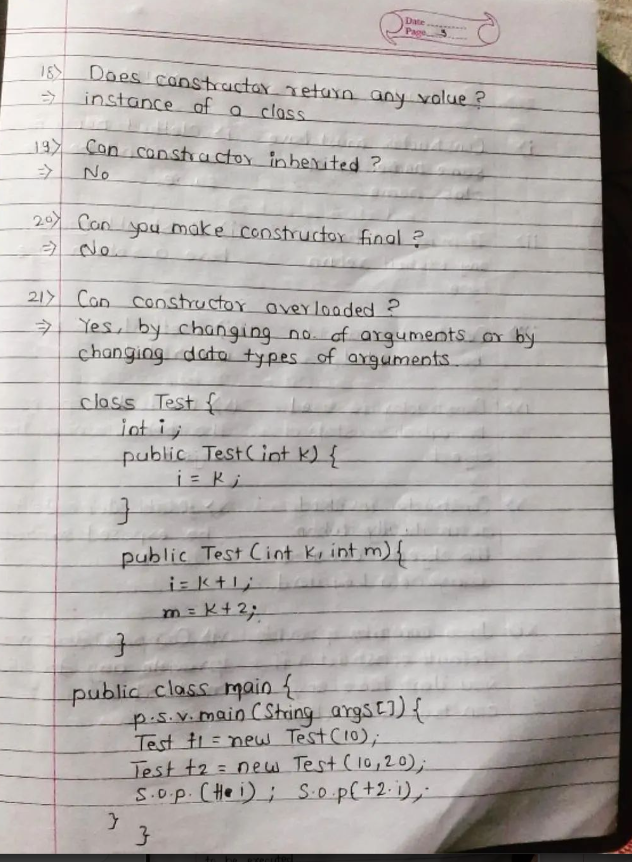 Date
Page 3
18> Does constructor return any value?
⇒ instance of a class
19> Can constructor inherited?
⇒ No
20> Can you make constructor final?
⇒ No
21> Can constructor overloaded?
⇒ Yes, by changing no. of arguments or by
changing data types of arguments.
class Test {
int i;
public Test(int k) {
i = k;
}
public Test (int k, int m){
i = k+1;
m = k+2;
}
public class main {
p.s.v. main (String args[]) {
Test t1 = new Test(10);
Test t2 = new Test (10,20);
S.o.p. ( i) ; S.o.p(t2.i);
}
}